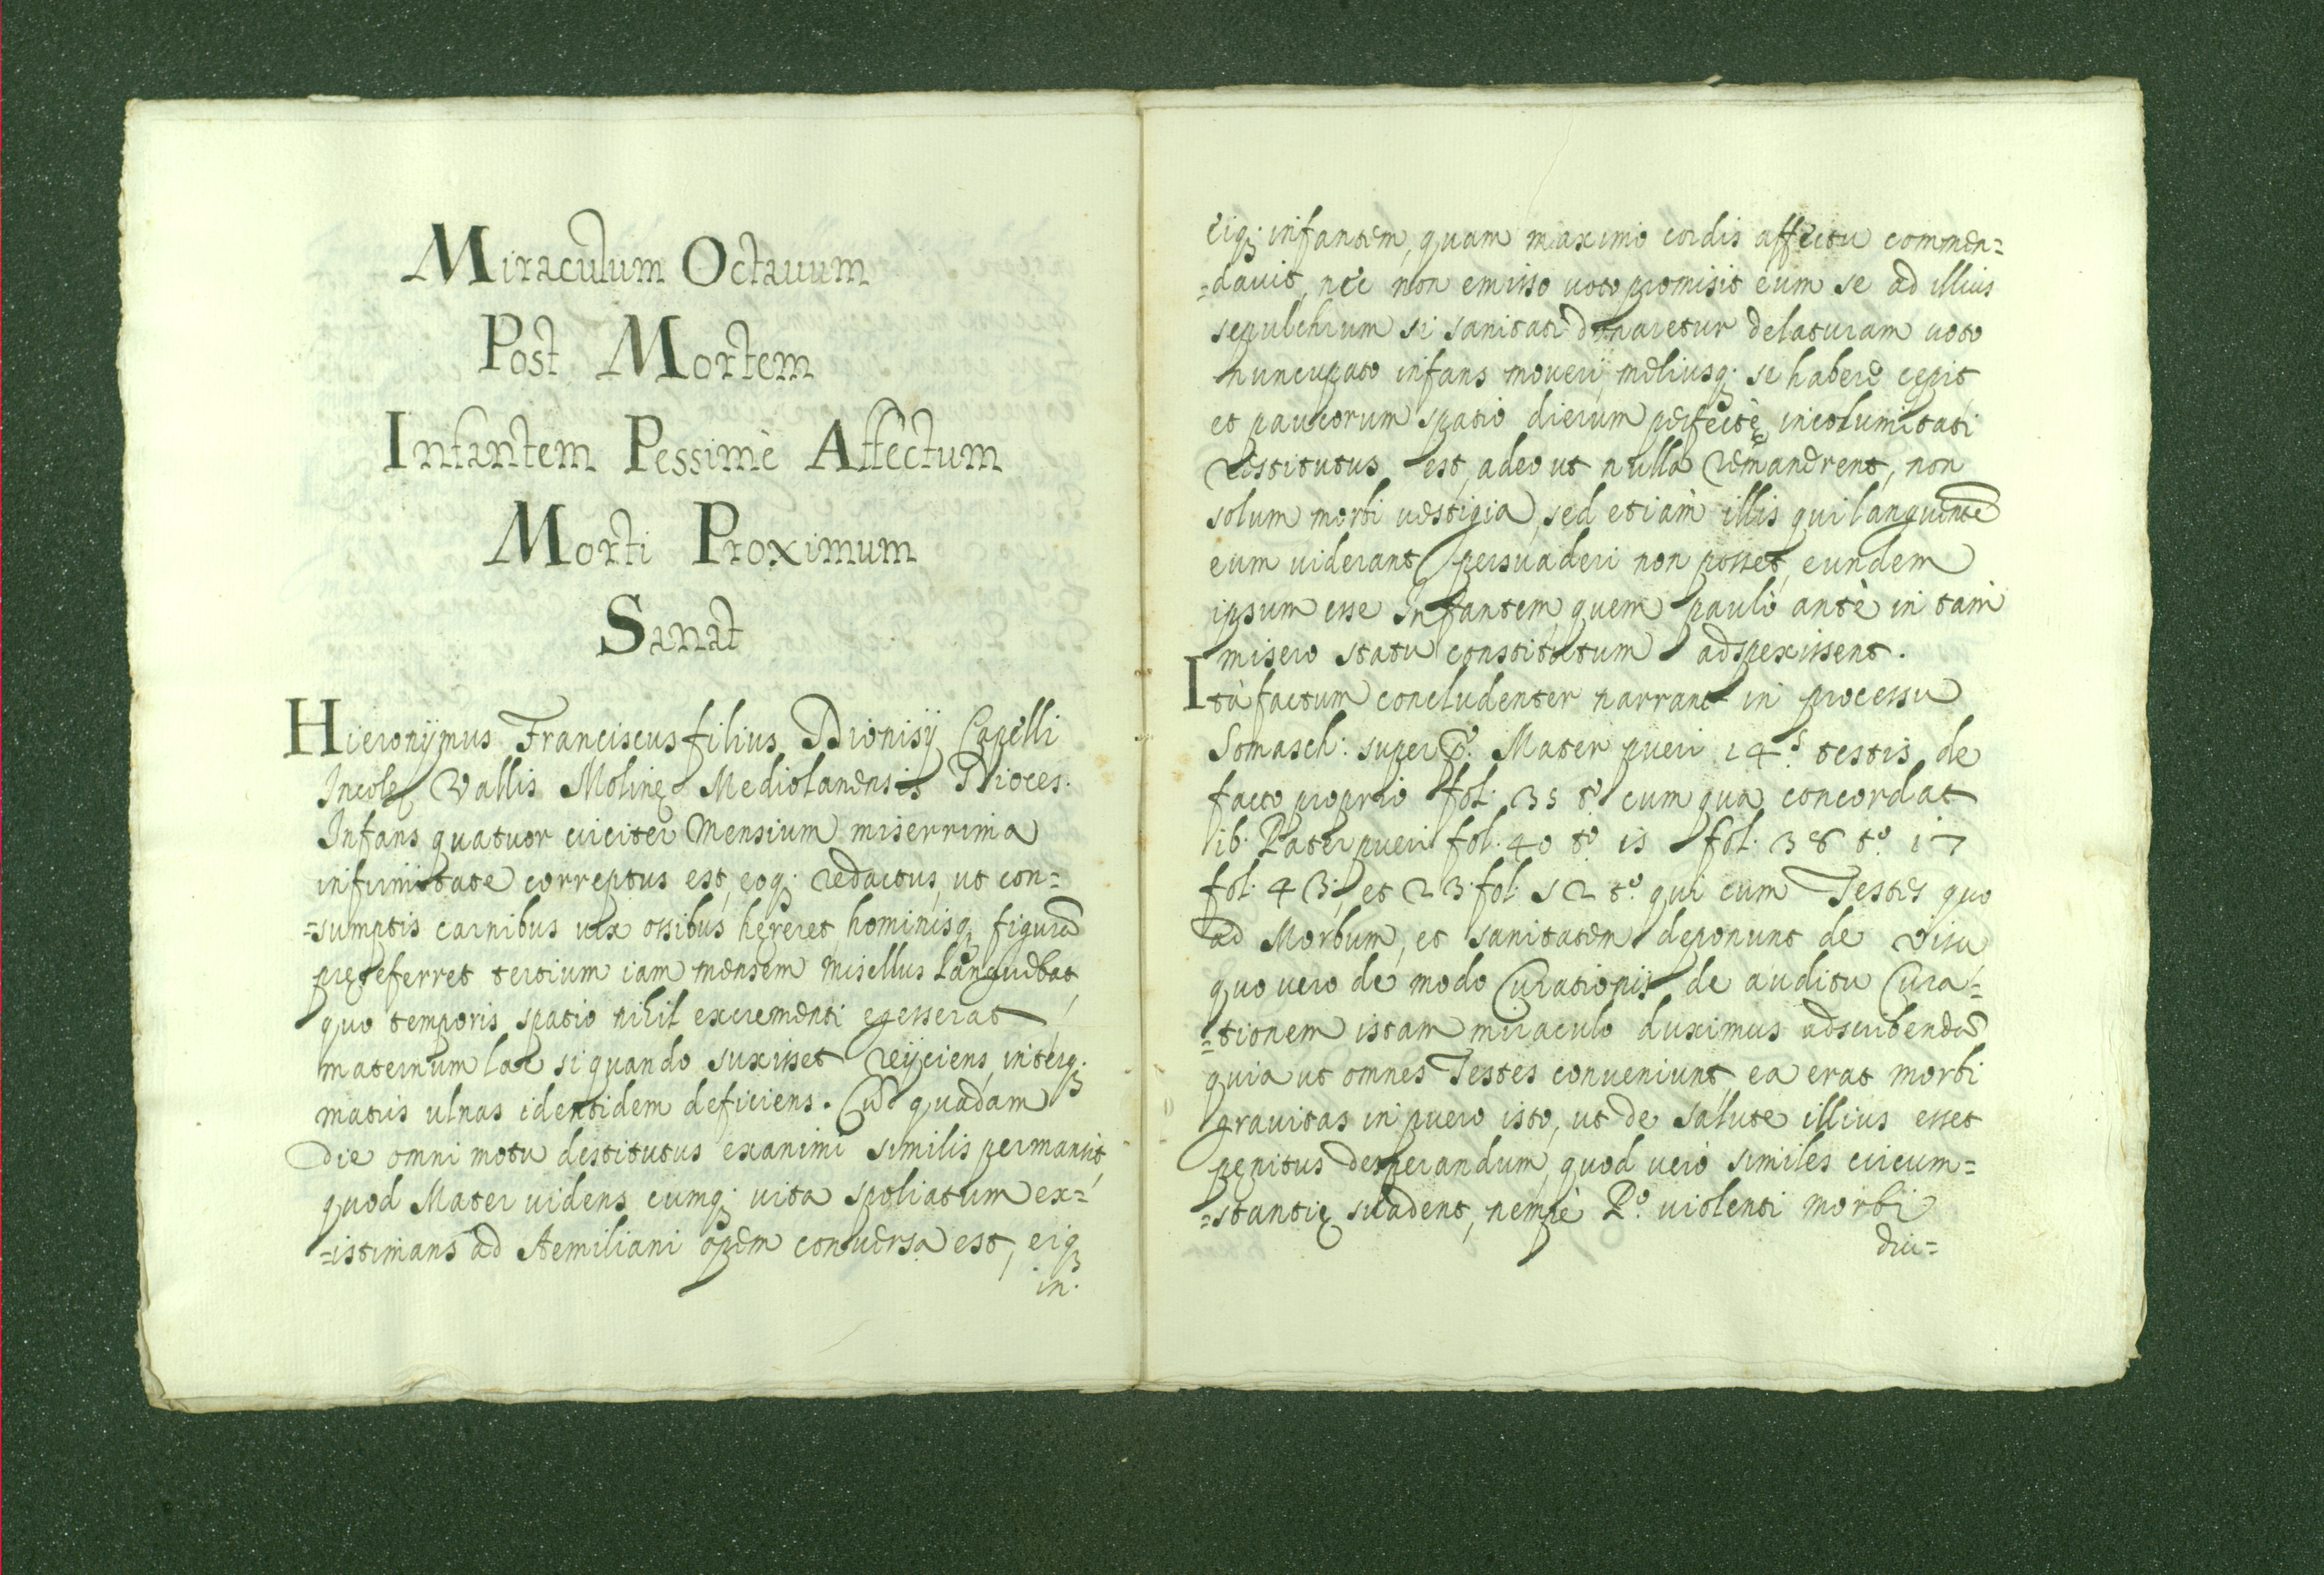 Miraculum Octauum
Post Mortem
Infantem Pessimè Affectum
Morti Proximum
Sanat
Hieronÿmus Franciscus filius Dionisÿ Capelli
Incolę Vallis Molinę Mediolanensis Dioces.
Infans quatuor circiter Mensium miserrima
infirmitate correptus est, eoq; redactus, ut con=
=sumptis carnibus uix ossibus hęreret, hominisq; figurã
pręseferret tertium iam mensem misellus languebat,
quo temporis spatio nihil excrementi egesserat,
maternum lac si quando suxisset reÿciens, interq;
matris ulnas identidem deficiens. Cum quadam
die omni motu destitutus exanimi similis permansit
quod Mater uidens, eumq; uita spoliatum ex=
=istimans ad Aemiliani opem conuersa est, eiq;
in.
eiq; infantem, quam maximo cordis affectu commen=
=dauit, nec non emisso uoto promisit eum se ad illius
sepulchrum si sanitati donaretur delaturam uoto
nuncupato infans moueri, meliusq; se habere cępit
et paucorum spatio dierum perfectę incolumitati
restitutus est, adeo ut nulla remanerent, non
solum morbi uestigia, sed etiam illis qui languentẽ
eum uiderant persuaderi non posset, eundem
ipsum esse Infantem, quem paulò antè in tam
misero statu constitutum adspexissent.
Ità factum concludenter narrant in processu
Somasch: super Mater pueri 14.s testis de
facto proprio fol. 35 t.o cum qua concordat
ib. Pater pueri fol. 40 t.o 15 fol. 38 t.o 17
fol. 43; et 23 fol. 52 t.o qui cum Testes quo
ad Morbum, et sanitatem deponunt de Visu
quo uero de modo Curationis de auditu Cura=
=tionem istam miraculo duximus adscribendã
quia ut omnes Testes conueniunt, ea erat morbi
grauitas in puero isto, ut de salute illius esset
penitus desperandum, quod uerò similes circum=
=stantię suadent, nempè P.o uiolenti morbi
diu=